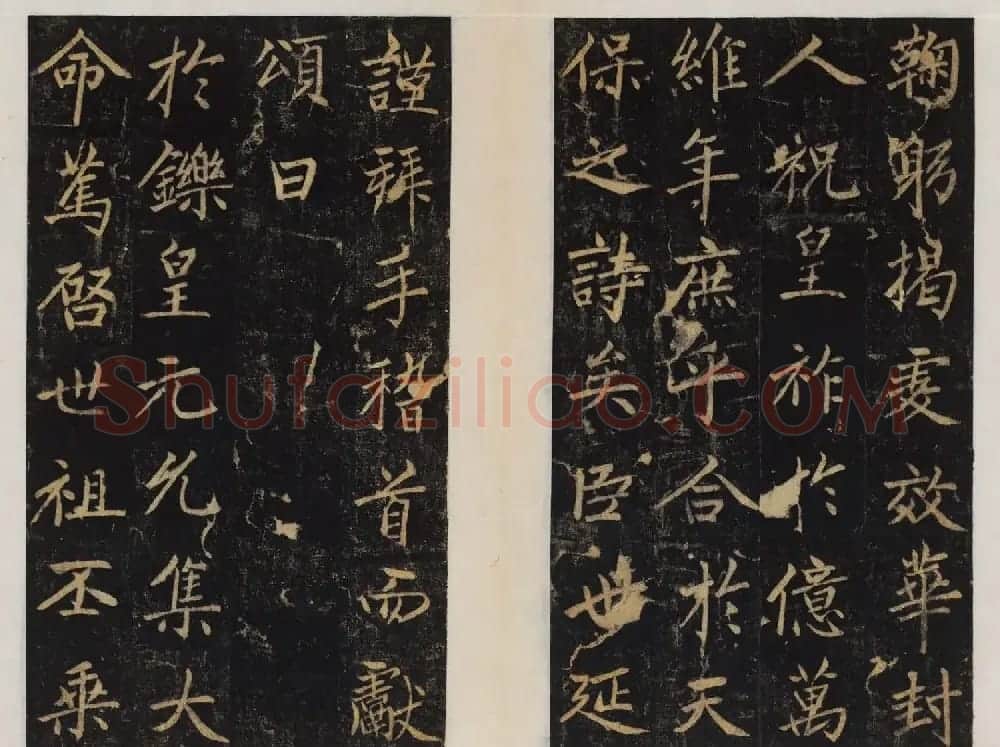 鞠躬揭虔效華封
人祝皇祚於億萬
維年庶乎合於天
保之詩矣臣世延
謹拜手稽首而獻
頌曰
於鑠皇元允集大
命篤啓世祖丕乘
Shufaziliao.COM